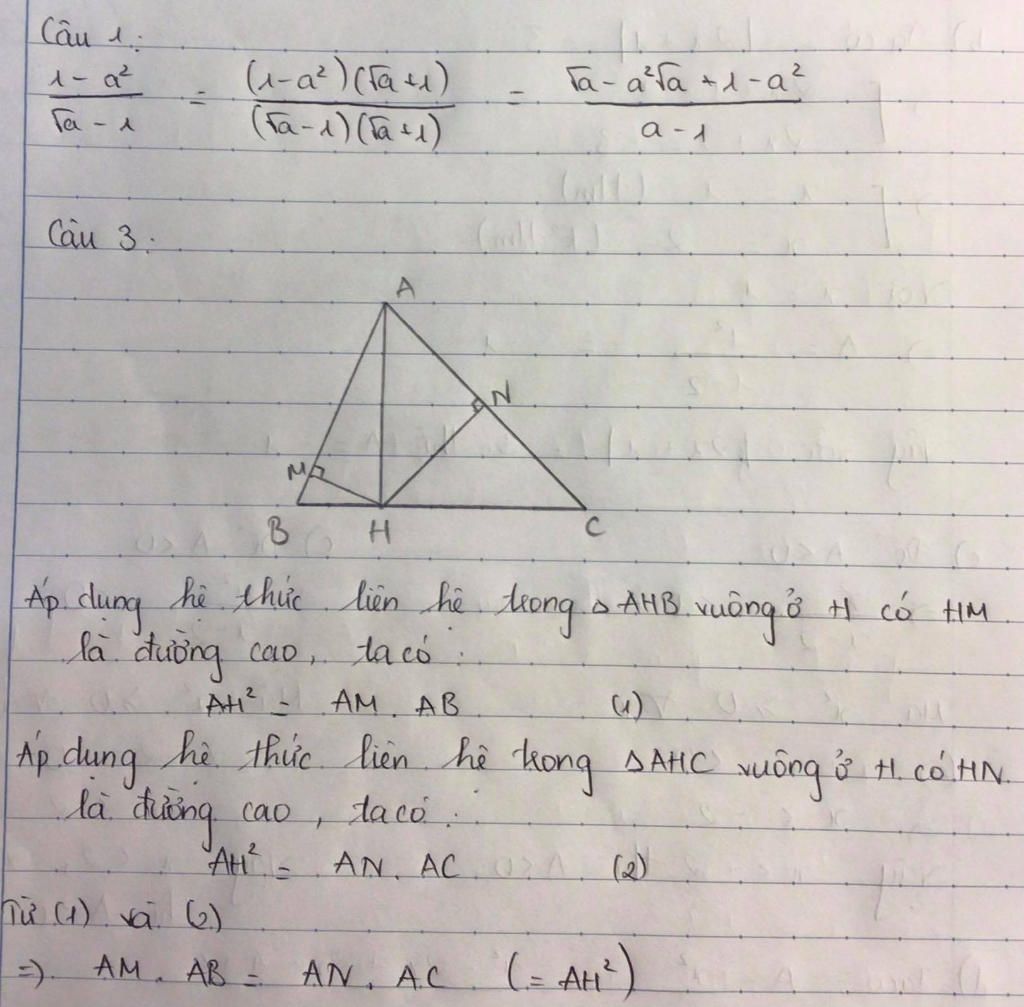 Câu 1:
1 - a² / √a - 1 = (1-a²)(√a+1) / (√a-1)(√a+1) = √a - a²√a + 1 - a² / a - 1
Câu 3:
A
N
M
B H C
Áp dụng hệ thức liên hệ trong △AHB vuông ở H có HM
là đường cao, ta có:
AH² = AM. AB (1)
Áp dụng hệ thức liên hệ trong △AHC vuông ở H có HN
là đường cao, ta có:
AH² = AN. AC (2)
Từ (1) và (2)
=> AM. AB = AN. AC (= AH²)